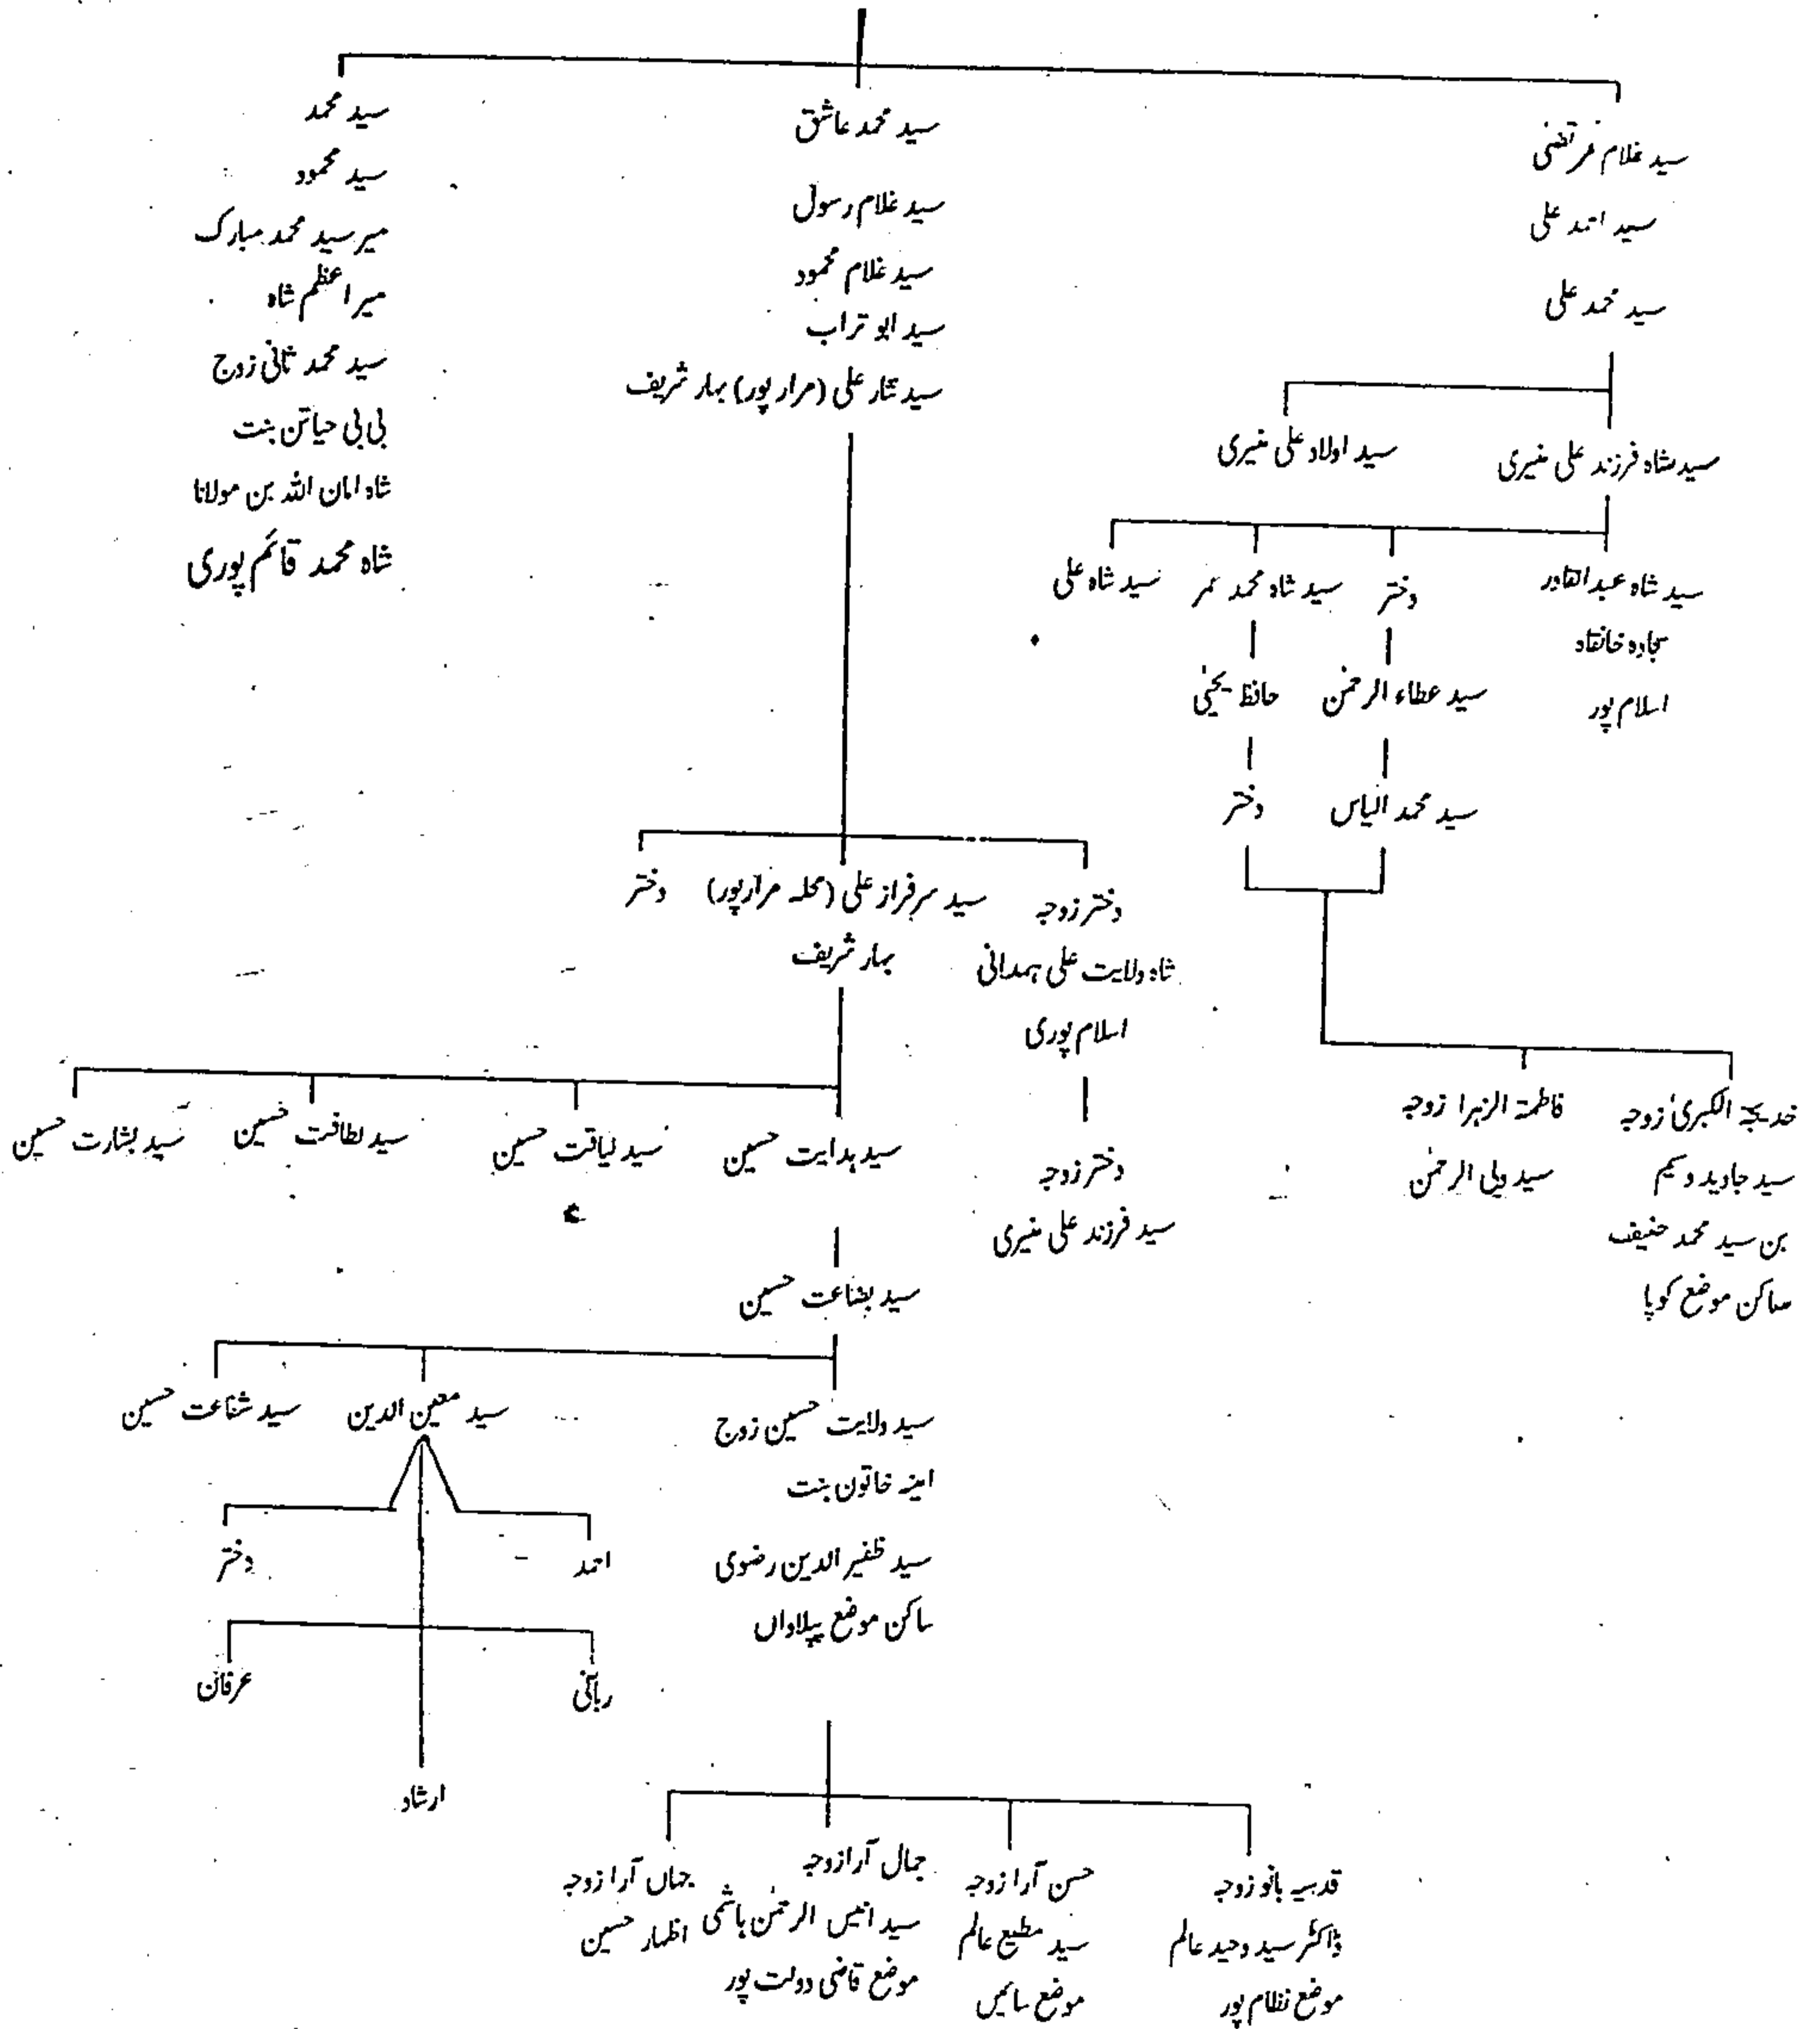 سید غلام مرتضی
سید احمد علی
سید محمد علی
سید شاہ فرزند علی منیری
سید اولاد علی منیری
سید شاہ عبدالقادر
سجادہ خانقاہ
اسلام پور
دختر
سید عطاء الرحمٰن
سید محمد الیاس
سید شاہ محمد عمر
حافظ یحیٰی
دختر
سید شاہ علی
خدیجۃ الکبریٰ زوجہ
سید جاوید وسیم
بن سید محمد حنیف
ساکن موضع کوپا
فاطمۃ الزہرا زوجہ
سید ولی الرحمٰن
سید محمد عاشق
سید غلام رسول
سید غلام محمود
سید ابو تراب
سید نثار علی (مرار پور) بہار شریف
دختر زوجہ
شاہ ولایت علی ہمدانی
اسلام پوری
دختر زوجہ
سید فرزند علی منیری
سید سرفراز علی (محلہ مرارپور)
بہار شریف
دختر
سید ہدایت حسین
سید لیاقت حسین
سید لطافت حسین
سید بشارت حسین
سید بضاعت حسین
سید ولایت حسین زوج
امینہ خاتون بنت
سید ظفیر الدین رضوی
ساکن موضع پیلاواں
سید معین الدین
سید شناعت حسین
احمد
دختر
ربانی
عرفان
ارشاد
قدسیہ بانو زوجہ
ڈاکٹر سید وحید عالم
موضع نظام پور
حسن آرا زوجہ
سید مطیع عالم
موضع سائیں
جمال آرا زوجہ
سید انیس الرحمٰن ہاشمی
موضع قاضی دولت پور
جہاں آرا زوجہ
اظہار حسین
سید محمد
سید محمود
میر سید محمد مبارک
میر اعظم شاہ
سید محمد ثانی زوج
بی بی حیاتن بنت
شاہ امان اللہ بن مولانا
شاہ محمد قائم پوری